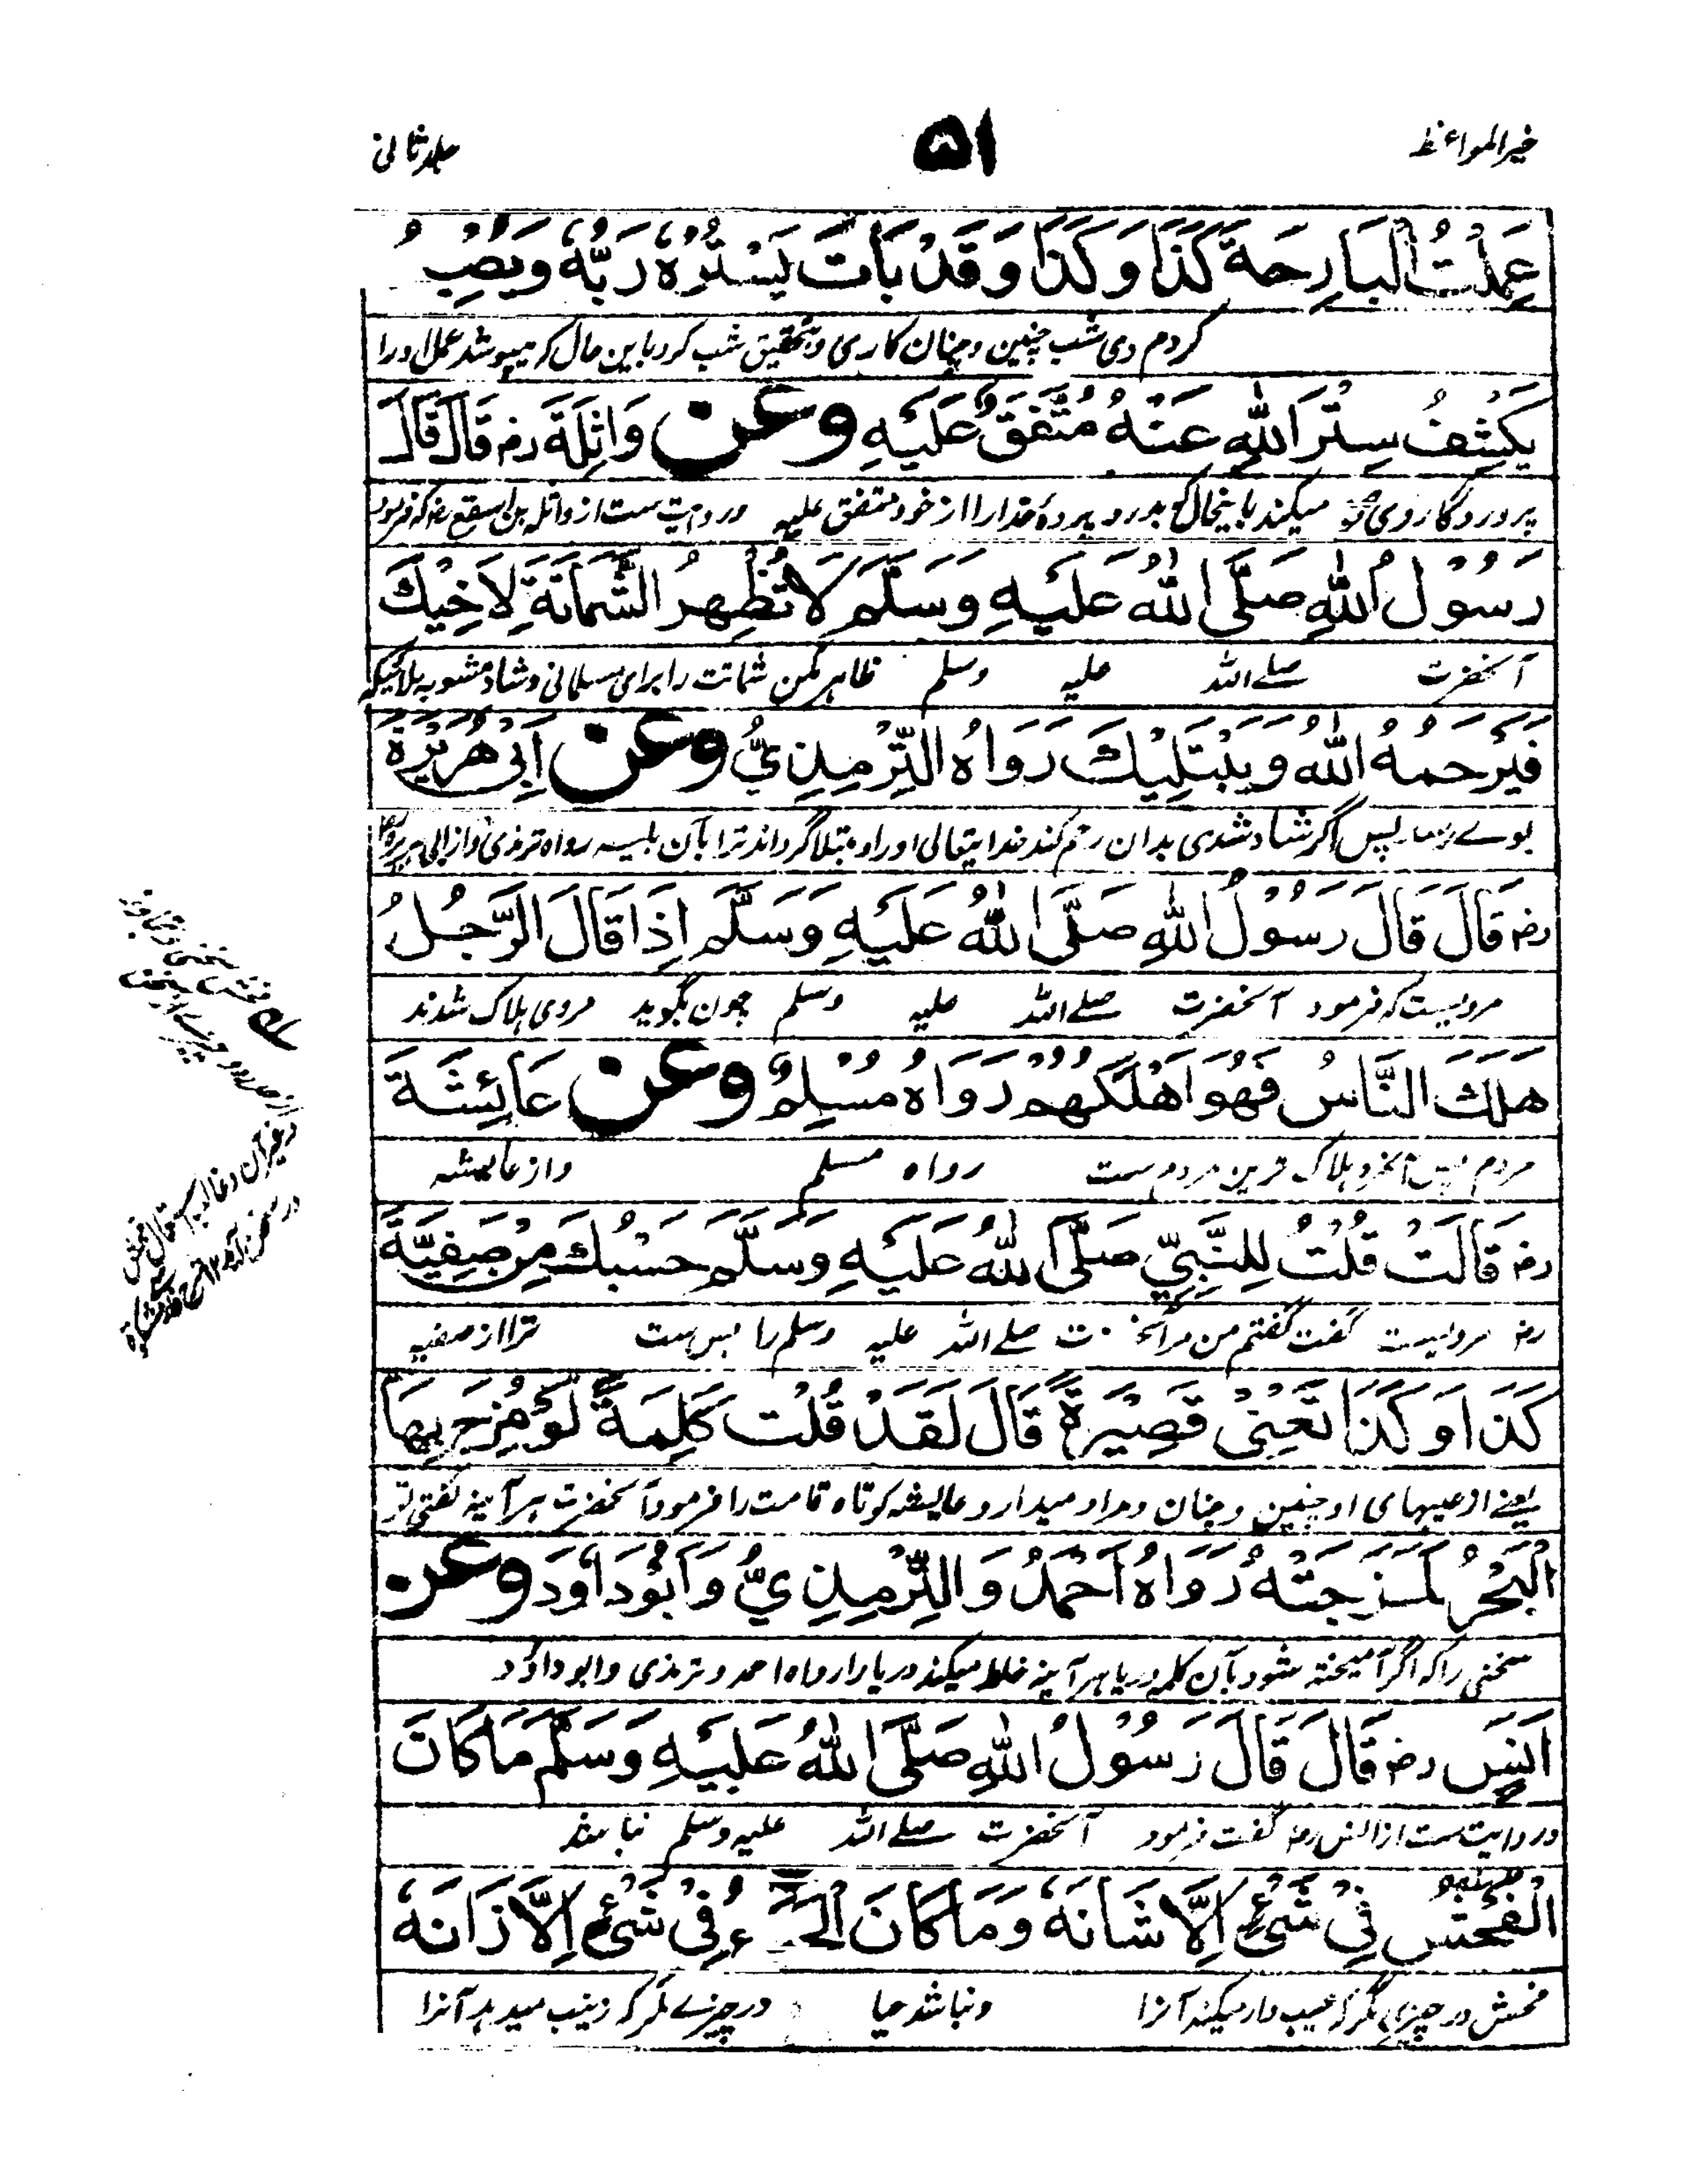 خیر المواعظ
۵۱
جلد ثانی
عَمِلْتُ الْبَارِحَةَ كَذَا وَكَذَا وَقَدْ بَاتَ يَسْتُرُهُ رَبُّهُ وَيُصْبِحُ
کردم دی شب چنین وچنان کاری وبتحقیق شب کرد باین حال که میپوشد عمل اورا
يَكْشِفُ سِتْرَ اللهِ عَنْهُ مُتَّفَقٌ عَلَيْهِ وعن وَاثِلَةَ رض قَالَ قَالَ
پروردگار وی میکند باینحال که بدرد پردهٔ خدارا از خود متفق علیه وروایت ست از واثله بن اسقع رض که فرمود
رَسُوْلُ اللهِ صَلَّى اللهُ عَلَيْهِ وَسَلَّمَ لَا تُظْهِرُ الشَّمَاتَةَ لِاَخِيْكَ
آنحضرت صلے الله علیه وسلم ظاهر مکن شماتت را برای مسلمانی وشاد مشو به بلائیکه
فَيَرْحَمُهُ اللهُ وَيَبْتَلِيْكَ رَوَاهُ التِّرْمِذِيُّ وعن اَبِيْ هُرَيْرَةَ
بوے رسد پس اگر شاد شدی بدان رحم کند خدایتعالی اورا ومبتلا گرداند ترا بآن بلیه رواه ترمذی واز ابی هریره
رض قَالَ قَالَ رَسُوْلُ اللهِ صَلَّى اللهُ عَلَيْهِ وَسَلَّمَ اِذَا قَالَ الرَّجُلُ
مرویست که فرمود آنحضرت صلے الله علیه وسلم چون بگوید مردی هلاک شدند
هَلَكَ النَّاسُ فَهُوَ اَهْلَكُهُمْ رَوَاهُ مُسْلِمٌ وعن عَائِشَةَ
مردم پس آنمرد هلاک ترین مردم ست رواه مسلم واز عایشه
رض قَالَتْ قُلْتُ لِلنَّبِيِّ صَلَّى اللهُ عَلَيْهِ وَسَلَّمَ حَسْبُكَ مِنْ صَفِيَّةَ
رض مرویست گفت گفتم من مر آنحضرت صلے الله علیه وسلم را بس ست ترا از صفیه
كَذَا وَكَذَا تَعْنِيْ قَصِيْرَةً قَالَ لَقَدْ قُلْتِ كَلِمَةً لَوْ مُزِجَ بِهَا
یعنے از عیبهای او چنین وچنان ومراد میدارد عایشه کوتاه قامت را فرمود آنحضرت هر آینه گفتی تو
الْبَحْرُ لَمَزَجَتْهُ رَوَاهُ اَحْمَدُ وَالتِّرْمِذِيُّ وَاَبُوْدَاوُدَ وعن
سخنی را که اگر آمیخته شود بآن کلمه دریا هر آینه خلط میکند دریا را رواه احمد وترمذی وابو داؤد
اَنَسٍ رض قَالَ قَالَ رَسُوْلُ اللهِ صَلَّى اللهُ عَلَيْهِ وَسَلَّمَ مَا كَانَ
وروایت ست از انس رض گفت فرمود آنحضرت صلے الله علیه وسلم نباشد
الْفُحْشُ فِيْ شَيْءٍ اِلَّا شَانَهُ وَمَا كَانَ الْحَيَاءُ فِيْ شَيْءٍ اِلَّا زَانَهُ
فحش در چیزی مگر که عیب دار میکند آنرا ونباشد حیا در چیزے مگر که زینب میدهد آنرا